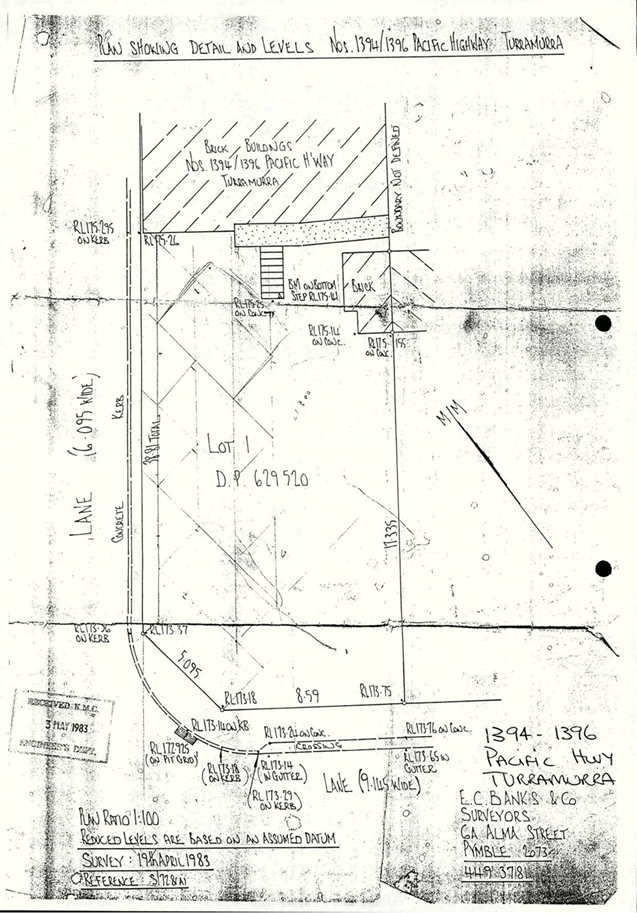 PLAN SHOWING DETAIL AND LEVELS NOS. 1394/1396 PACIFIC HIGHWAY TURRAMURRA
BRICK BUILDINGS
NOS. 1394/1396 PACIFIC H'WAY
TURRAMURRA
BOUNDARY NOT DEFINED
RL175·295
ON KERB
RL175·26
BM ON BOTTOM
STEP RL175·14
BRICK
ON CONC.
RL175·14
ON CONC.
RL175·155
ON CONC.
LANE (6·095 WIDE)
CONCRETE KERB
38·81 TOTAL
LOT 1
D.P. 629520
M/M
17·335
ON KERB
RL173·37
5·095
RL173·18
8·59
RL173·75
RECEIVED K.M.C.
3 MAY 1983
ENGINEER'S DEPT.
RL173·14 ON KB
RL173·24 ON CONC.
RL173·76 ON CONC.
CROSSING
RL172·925
(ON PIT GRID)
RL173·18
(ON KERB)
RL173·14
(IN GUTTER)
RL173·65 IN
GUTTER
(RL173·29
ON KERB)
LANE (9·145 WIDE)
1394 - 1396
PACIFIC HWY
TURRAMURRA
E.C. BANKS & CO
SURVEYORS
6A ALMA STREET
PYMBLE 2073
449 3781
PLAN RATIO 1:100
REDUCED LEVELS ARE BASED ON AN ASSUMED DATUM
SURVEY: 19th APRIL 1983
REFERENCE: